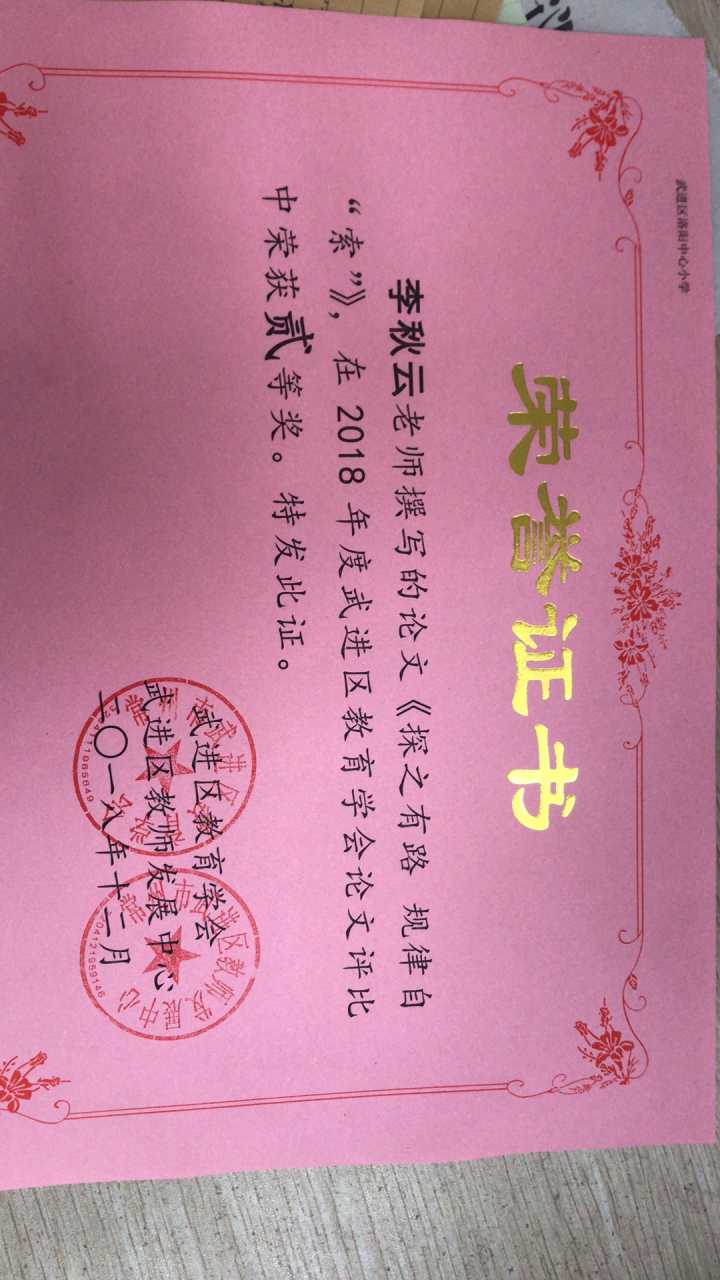 武进区洛阳中心小学
荣誉证书
李秋云老师撰写的论文《探之有路 规律自
“索”》，在 2018 年度武进区教育学会论文评比
中荣获贰等奖。特发此证。
武进区教育学会
武进区教师发展中心
二〇一八年十二月